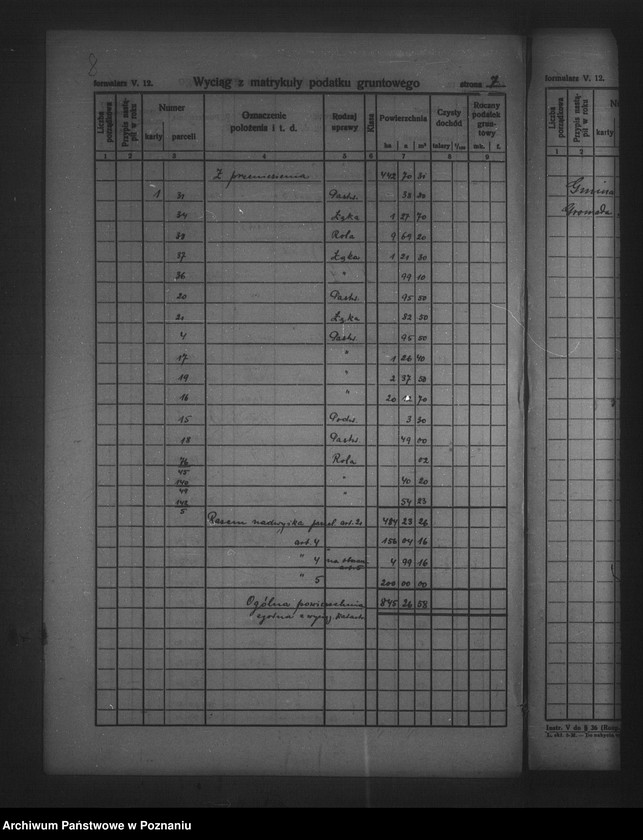 8
formularz V. 12. Wyciąg z matrykuły podatku gruntowego strona 7
Liczba porządkowa
Przypis nastąpił w roku
Numer
karty parceli
Oznaczenie
położenia i t. d.
Rodzaj
uprawy
Klasa
Powierzchnia
ha a m²
Czysty
dochód
talary
Roczny
podatek
grun-
towy
mk. f.
1 2 3 4 5 6 7 8 9
Z przeniesienia 442 70
1 Pastw. 38
34 Łąka 1 27 70
Rola 9 69 20
37 Łąka 1 21 30
36 " 99 10
20 Pastw. 95 50
21 Łąka 82 50
4 Pastw. 95 00
17 " 1 26 40
19 " 2 37 50
16 " 20 70
15 Podw. 3 30
18 Pastw. 49 00
76
45 Rola 02
49 " 40 20
142
5 " 54 53
Razem nadwyżka art. 484 23 26
art. 4 156 04 16
" 4 4 99 16
" 5 200 00 00
Ogólna powierzchnia 845 26 58
zgodna z
formularz V. 12.
Liczba porządkowa
Przypis nastąpił w roku
Nu
karty
1 2
Gmina
Gromada
Instr. V do § 36
Archiwum Państwowe w Poznaniu